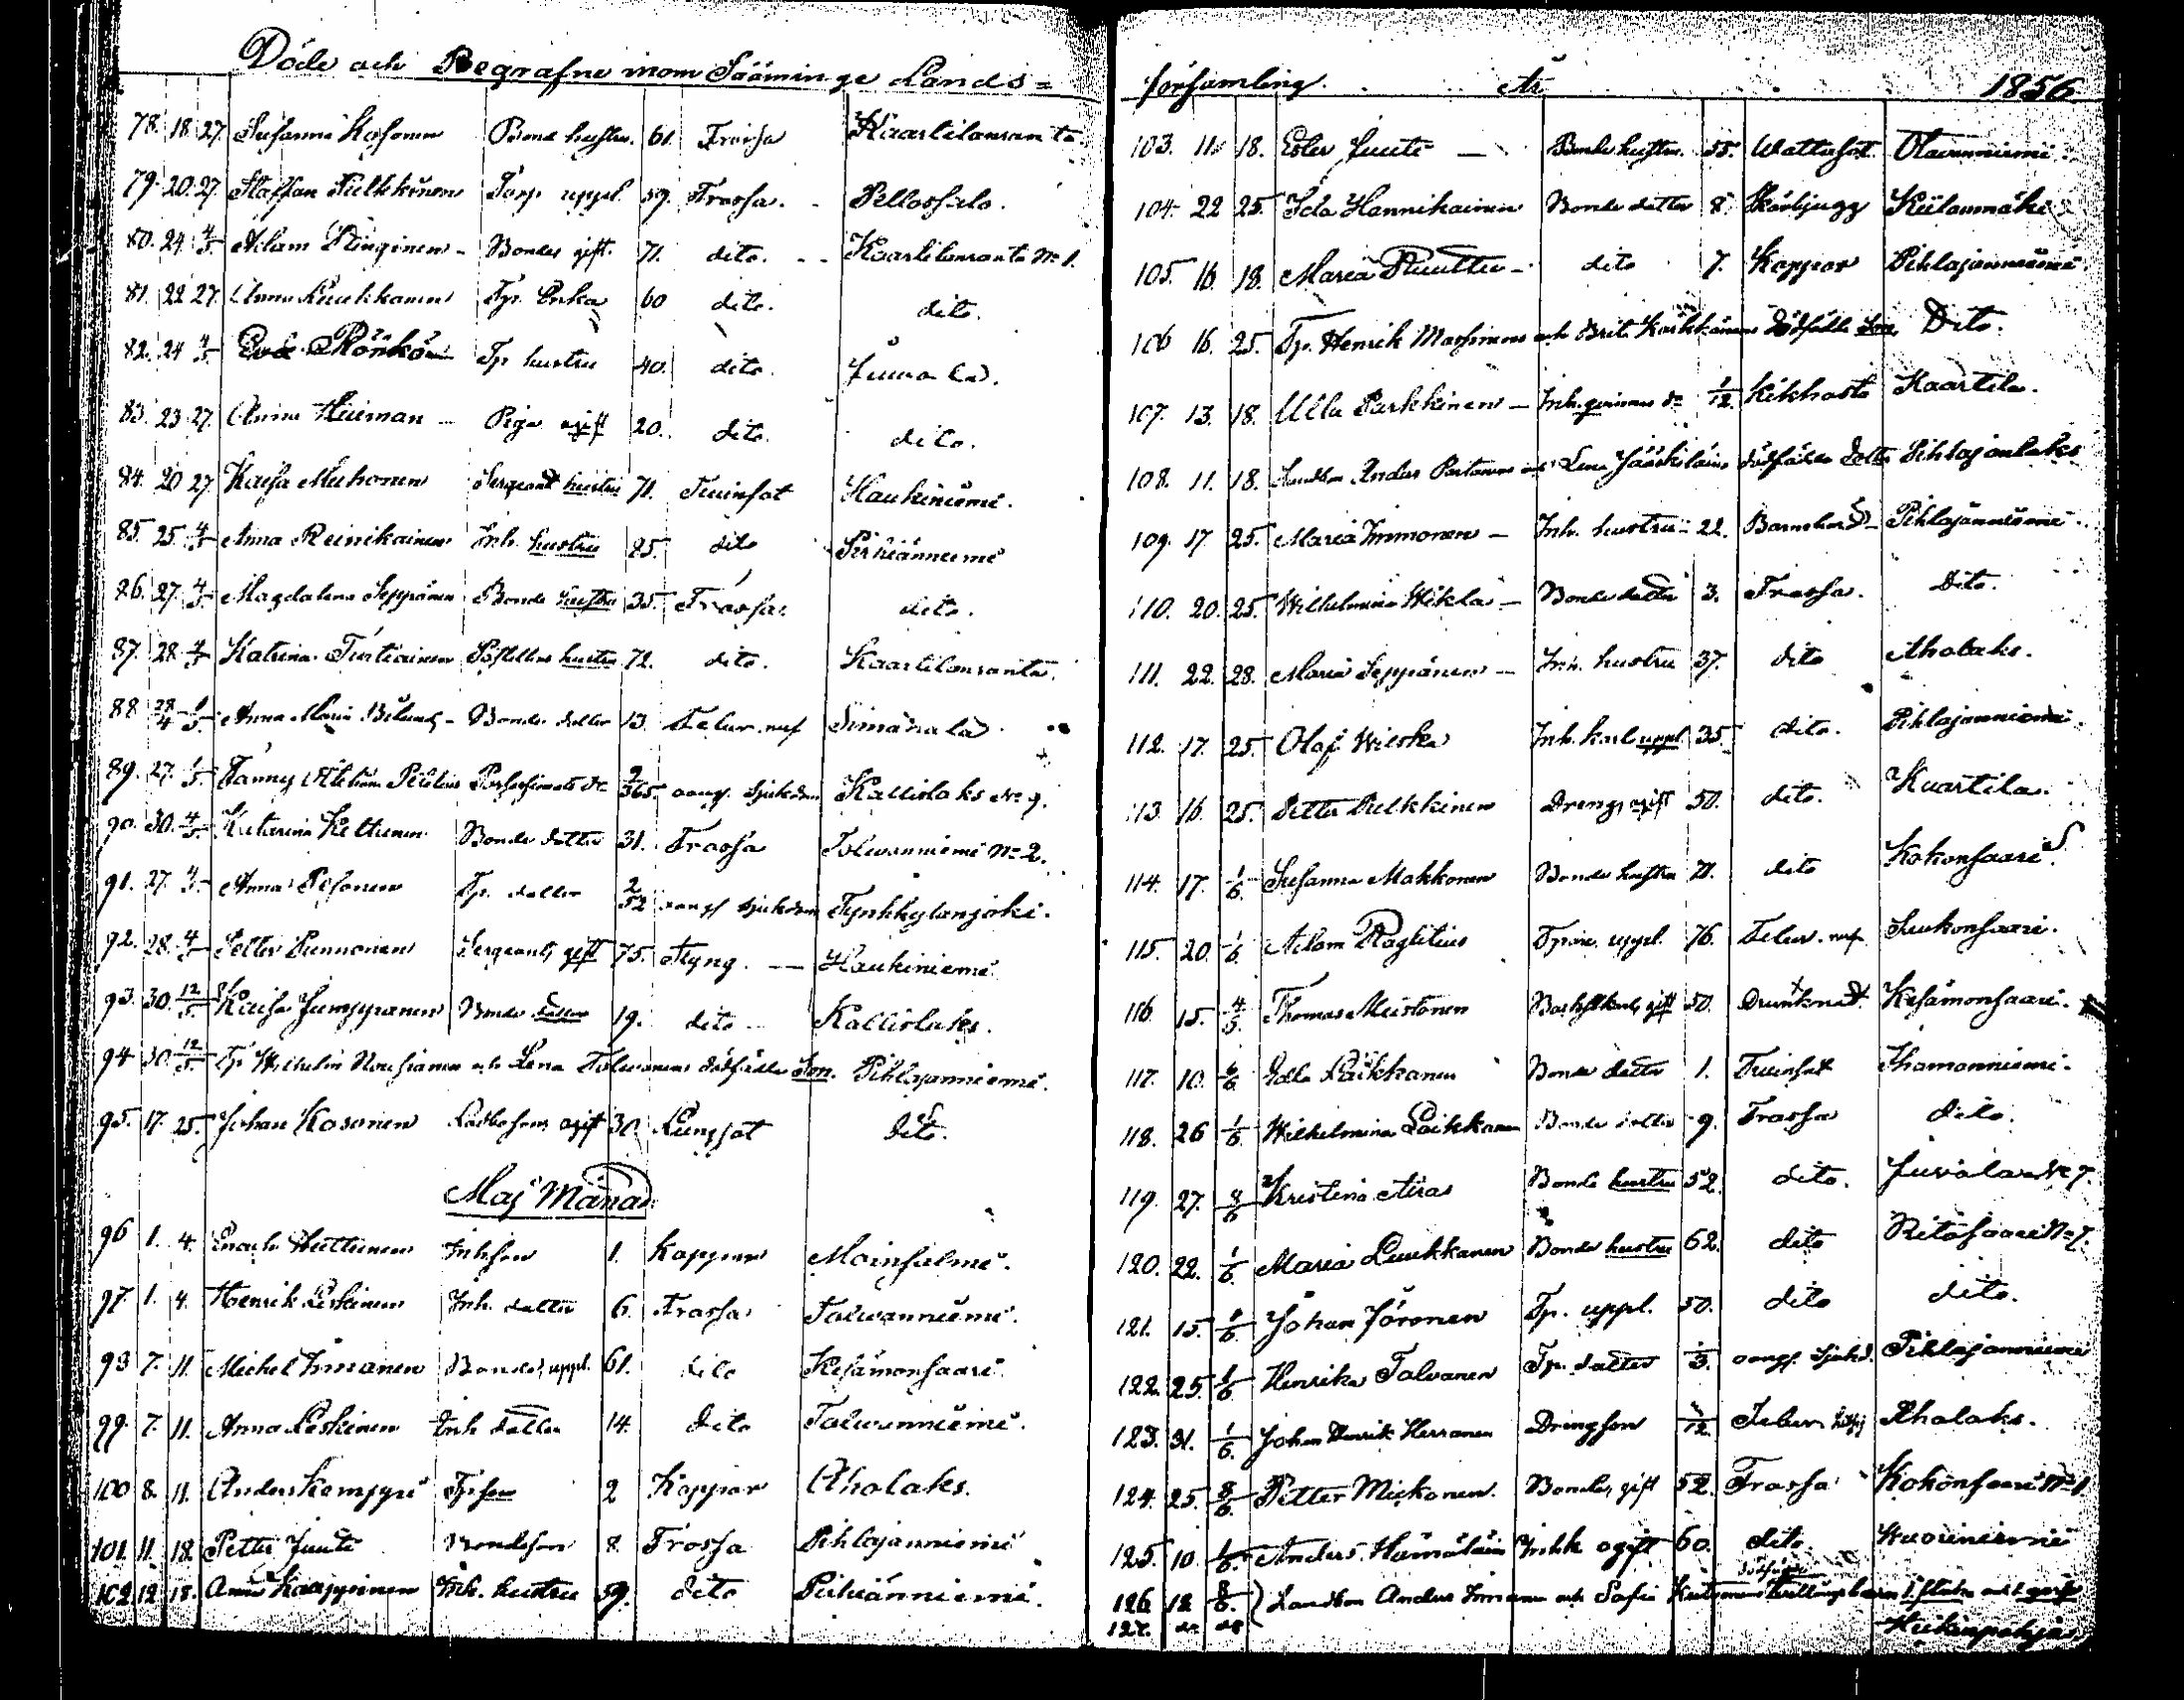 Döde och Begrafne inom Sääminge Lands=
78. 18. 27. Susanna Kosonen Bond hustru. 61. Frossa Kaartilanranta.
79. 20. 27. Staffan Pulkkinen Torp uppl. 59. Frossa. Pellossalo.
80. 24 4/5 Adam Bondes gift. 71. dito. Kaartilanranta No 1.
81. 22 27. Anna Luukkonen Tp. Enka 60 dito. dito.
82. 24 4/5 Eva Rönkö Tp hustru 40. dito. Juvola.
83. 23. 27. Anna Hiiman Piga ogift 20. dito. dito.
84. 20 27. Kaisa Muhonen Sergeant hustru 71. Tvinsot Haukiniemi.
85. 25. 4/5 Anna Reinikainen Inh. hustru 25. dito Pihlänniemi
86. 27. 4/5 Magdalena Seppänen Bonde hustru 35. Frossa. dito.
87. 28. 4/5 Katrina Turtiainen hustru 72. dito. Kaartilanranta.
88 28/4 1/5 Anna Maria Bonde dotter 13. Simanala
89. 27. 1/5 Fanny 9/365. oang. sjukdom Kallislaks No 9.
90. 30. 4/5 Katarina Kettunen Bonde dotter 31. Frossa Tolvanniemi No 2.
91. 27. 4/5 Anna Pesonen Tp. dotter 2/52 oang. sjukdom Tynkkylänjoki.
92. 28. 4/5 Petter Punnonen Sergeant, gift 75. Styng. Haukiniemi
93. 30. 12/5 Kaisa Jumppanen Bonde dotter 19. dito Kallislaks.
94 30. 12/5 Tp Wilhelm Nousiainen och Lena Tolvanens dödfödde Son. Pihlajanniemi.
95. 17. 25. Johan Kosonen ogift 30. Lungsot dito.
Maj Månad.
96 1. 4. Enoch Huttunen Inhson 1. Koppor Moinsalmi.
97. 1. 4. Henrik Leskinen Inh. dotter 6. Frossa Tolvanniemi.
98 7. 11. Michel Immonen Bonde, uppl. 61. dito Kesämonsaari.
99. 7. 11. Anna Leskinen Inh dotter 14. dito Tolvanniemi.
100 8. 11. Anders Kemppi Tp son 2 Koppor Aholaks.
101. 11. 18. Petter Juuti Bondeson 8. Frossa Pihlajanniemi
102. 12. 18. Anna Kauppinen Inh. hustru 59. dito Pihlänniemi.
församling. År 1856
103. 11. 18. Ester Juuti — Bonde hustru. 55. Wattusot. Olavinniemi.
104. 22 25. Ida Hannikainen Bonde dotter 8. Skörbjugg Kiilanmäki
105. 16. 18. Maria Ruuttu — dito 7. Koppor Pihlajanniemi.
106 16. 25. Tp. Henrik Massinens och Brita Karkkänens dödfödde Son Dito.
107. 13. 18. Ulla Parkkinen — 1/12. Kikhosta Kaartila.
108. 11. 18. Landbon Anders Partanens och Lena Jääskeläins dödfödda dotter Pihlajanlaks
109. 17. 25. Maria Immonen — Inh. hustru 22. Barnsbörd — Pihlajanniemi.
110. 20. 25. Wilhelmina Wikla — Bonde dotter 3. Frossa. Dito.
111. 22. 28. Maria Seppänen — Inh. hustru 37. dito Aholaks.
112. 17. 25. Olof Wiiska Inh. karl uppl 35. dito. Pihlajanniemi.
113. 16. 25. Petter Pulkkinen Dreng, ogift 50. dito. Kaartila.
114. 17. 1/6. Susanna Makkonen Bonde hustru 71. dito Kokonsaari.
115. 20. 1/6. Adam Raglitius uppl. 76. Liukonsaari.
116. 15. 4/5 Thomas Mustonen gift 50. Drunknat. Kesämonsaari.
117. 10. 6/6 Edla Laikkanen Bonde dotter 1. Tvinsot Ihamonniemi.
118. 26 1/6 Wilhelmina Laikkanen Bonde dotter 9. Frossa dito.
119. 27. 8/6 Kristina Airas Bonde hustru 52. dito. Juvola No 7.
120. 22. 1/6. Maria Luukkanen Bonde hustru 62. dito Ritosaari No 7.
121. 15. 1/6. Johan Joronen Tp. uppl. 50. dito dito.
122. 25. 1/6 Henrika Tolvanen Tp. dotter 1/3. oang. sjukd. Pihlajanniemi
123. 31. 1/6. Johan Henrik Herranen Drengson Aholaks.
124. 25. 8/6. Petter Mickonen. Bonde, gift 52. Frossa Kokonsaari No 1.
125. 10. 1/6. Anders Hämäläin Inhk ogift 60. dito Wuoriniemi
126 12 8/6. Landbon Anders Immonen och Sofia dödfödde tvillingbarn 1 flicka och 1 gosse
127. do do Heikinpohja.